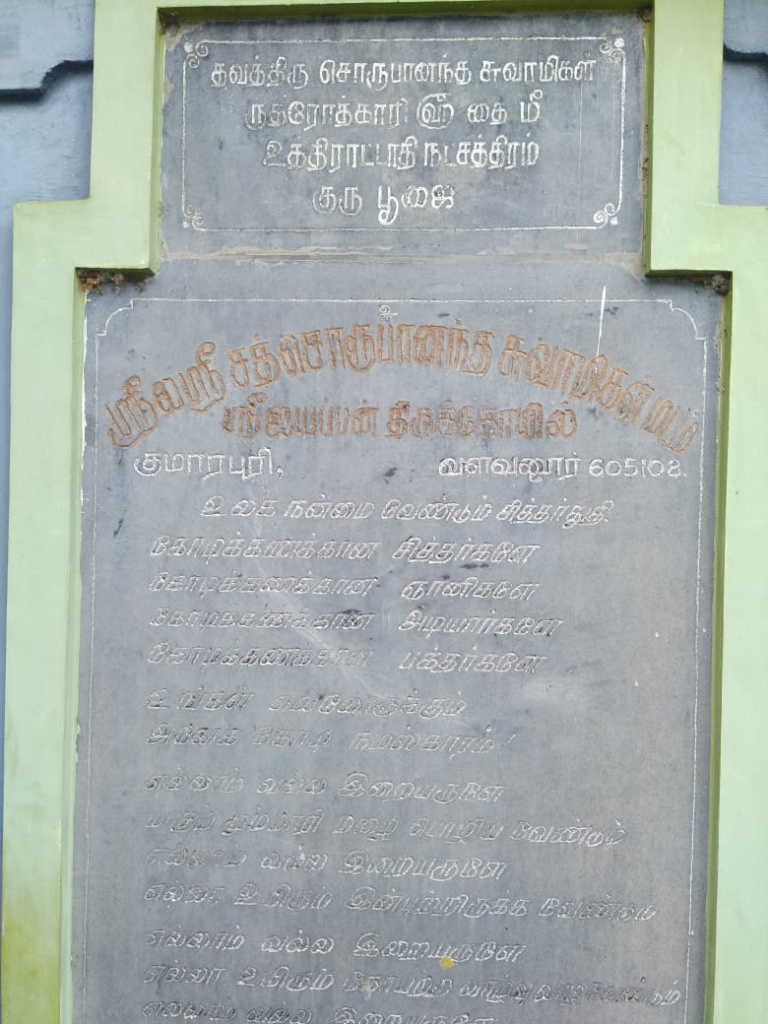 தவத்திரு சொருபானந்த சுவாமிகள்
ருத்ரோத்காரி ஹ் தை மீ
உத்திராட்டாதி நட்சத்திரம்
குரு பூஜை
ஸ்ரீலஸ்ரீ சத்சொருபானந்த சுவாமிகள் மடம்
ஸ்ரீ ஐயப்பன் திருக்கோயில்
குமாரபுரி,
வளவனூர் 605108.
உலக நன்மை வேண்டும் சித்தர்துதி.
கோடிக்கணக்கான சித்தர்களே
கோடிக்கணக்கான ஞானிகளே
கோடிக்கணக்கான அடியார்களே
கோடிக்கணக்கான பக்தர்களே
உங்கள் அனைவருக்கும்
அனேக கோடி நமஸ்காரம்!
எல்லாம் வல்ல இறையருளே
மும்மாரி மழை பொழிய வேண்டும்
எல்லாம் வல்ல இறையருளே
எல்லா உயிரும் இன்புற்றிருக்க வேண்டும்
எல்லாம் வல்ல இறையருளே
எல்லா உயிரும் வாழ்வு வேண்டும்
எல்லாம் வல்ல இறையருளே